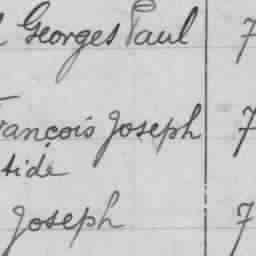 Georges Paul 7
François Joseph 7
Joseph 7